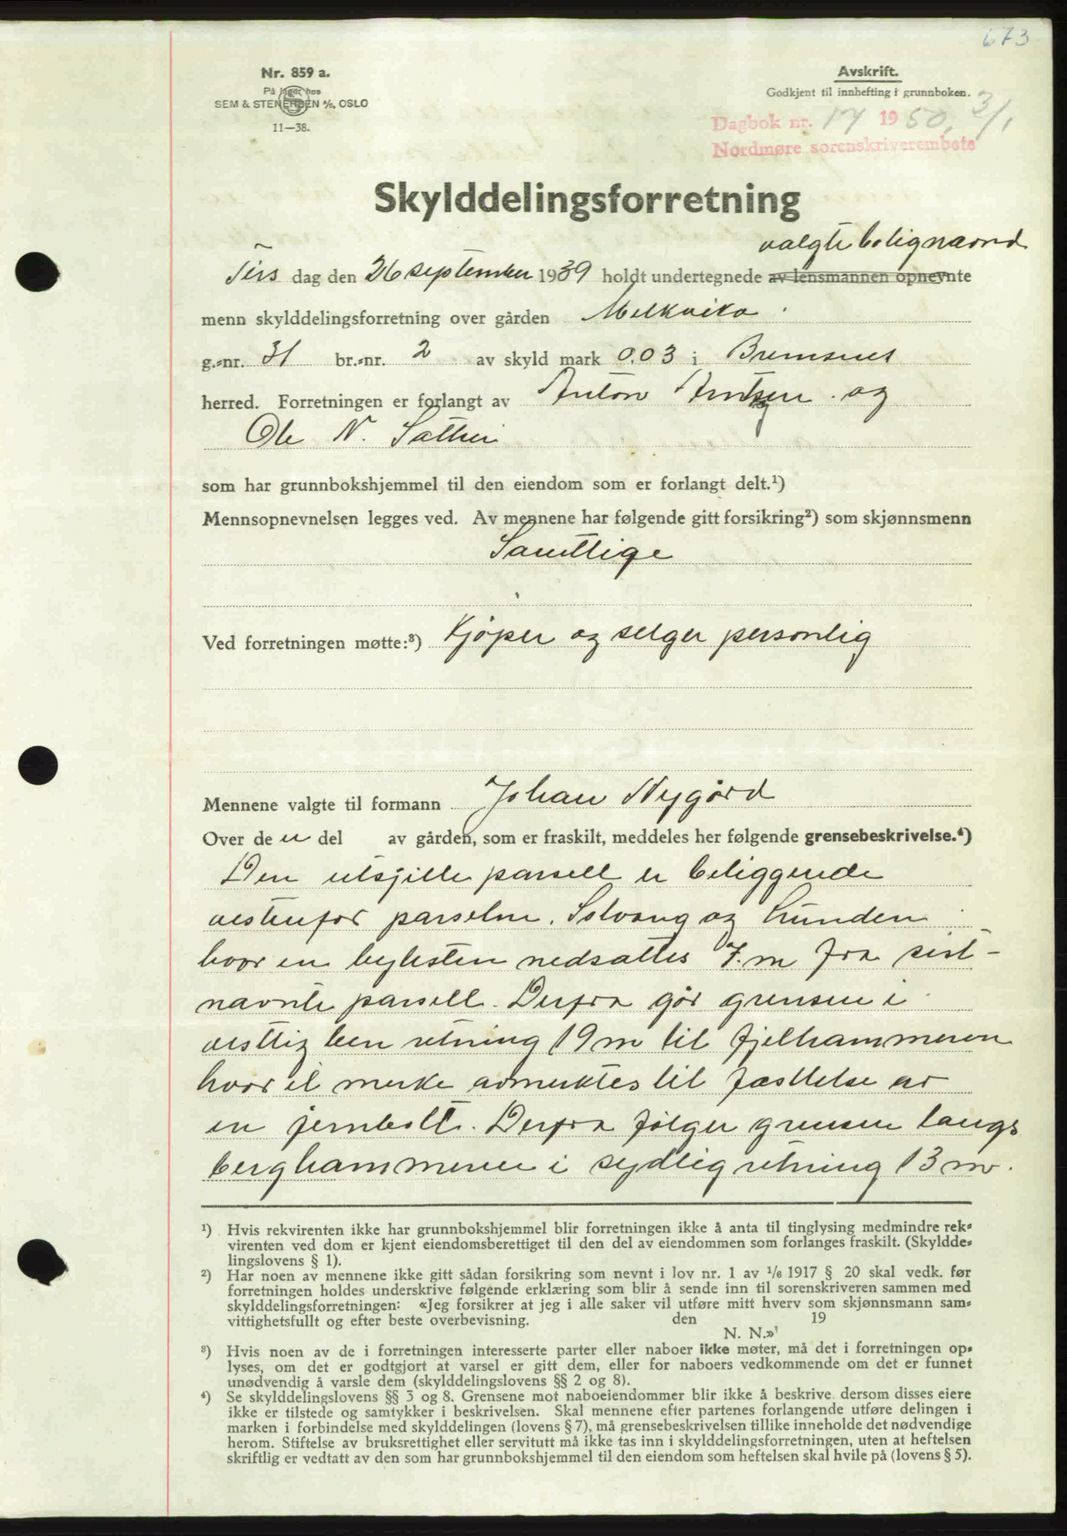 673
Nr. 859 a.
På lager hos
SEM & STENERSEN A/S, OSLO
11—38.
Avskrift.
Godkjent til innhefting i grunnboken.
Dagbok nr. 17 1950, 3/1
Nordmøre sorenskriverembete
Skylddelingsforretning
valgte bolignævnd
Tirs dag den 26 september 1939 holdt undertegnede av lensmannen opnevnte
menn skylddelingsforretning over gården Melkvika
g.-nr. 31 br.-nr. 2 av skyld mark 0,03 i Bremsnes
herred. Forretningen er forlangt av Anton Arntsen og
Ole N. Sather
som har grunnbokshjemmel til den eiendom som er forlangt delt.¹)
Mennsopnevnelsen legges ved. Av mennene har følgende gitt forsikring²) som skjønnsmenn
Samtlige
Ved forretningen møtte:³) Kjøper og selger personlig
Mennene valgte til formann Johan Nygård
Over de n del av gården, som er fraskilt, meddeles her følgende grensebeskrivelse.⁴)
Den utsjilte parsell er beliggende
vestenfor parselne. Solvang og Lunden
hvor en bylesten nedsattes 7. m fra sist-
navnte parsell. Derfra går grensen i
vesttig ben retning 19 m til fjelhammeren
hvor et merke avmerktes til fæsttelse av
en jernbolt. Derfra følger grensen langs
berghammeren i sydlig retning 13 m.
¹) Hvis rekvirenten ikke har grunnbokshjemmel blir forretningen ikke å anta til tinglysing medmindre rek-
virenten ved dom er kjent eiendomsberettiget til den del av eiendommen som forlanges fraskilt. (Skyldde-
lingslovens § 1).
²) Har noen av mennene ikke gitt sådan forsikring som nevnt i lov nr. 1 av 1/6 1917 § 20 skal vedk. før
forretningen holdes underskrive følgende erklæring som blir å sende inn til sorenskriveren sammen med
skylddelingsforretningen: «Jeg forsikrer at jeg i alle saker vil utføre mitt hverv som skjønnsmann sam-
vittighetsfullt og efter beste overbevisning. den 19
N. N.»
³) Hvis noen av de i forretningen interesserte parter eller naboer ikke møter, må det i forretningen op-
lyses, om det er godtgjort at varsel er gitt dem, eller for naboers vedkommende om det er funnet
unødvendig å varsle dem (skylddelingslovens §§ 2 og 8).
⁴) Se skylddelingslovens §§ 3 og 8. Grensene mot naboeiendommer blir ikke å beskrive dersom disses eiere
ikke er tilstede og samtykker i beskrivelsen. Skal mennene efter partenes forlangende utføre delingen i
marken i forbindelse med skylddelingen (lovens § 7), må grensebeskrivelsen tillike inneholde det nødvendige
herom. Stiftelse av bruksrettighet eller servitutt må ikke tas inn i skylddelingsforretningen, uten at heftelsen
skriftlig er vedtatt av den som har grunnbokshjemmel til den eiendom som heftelsen skal hvile på (lovens § 5).